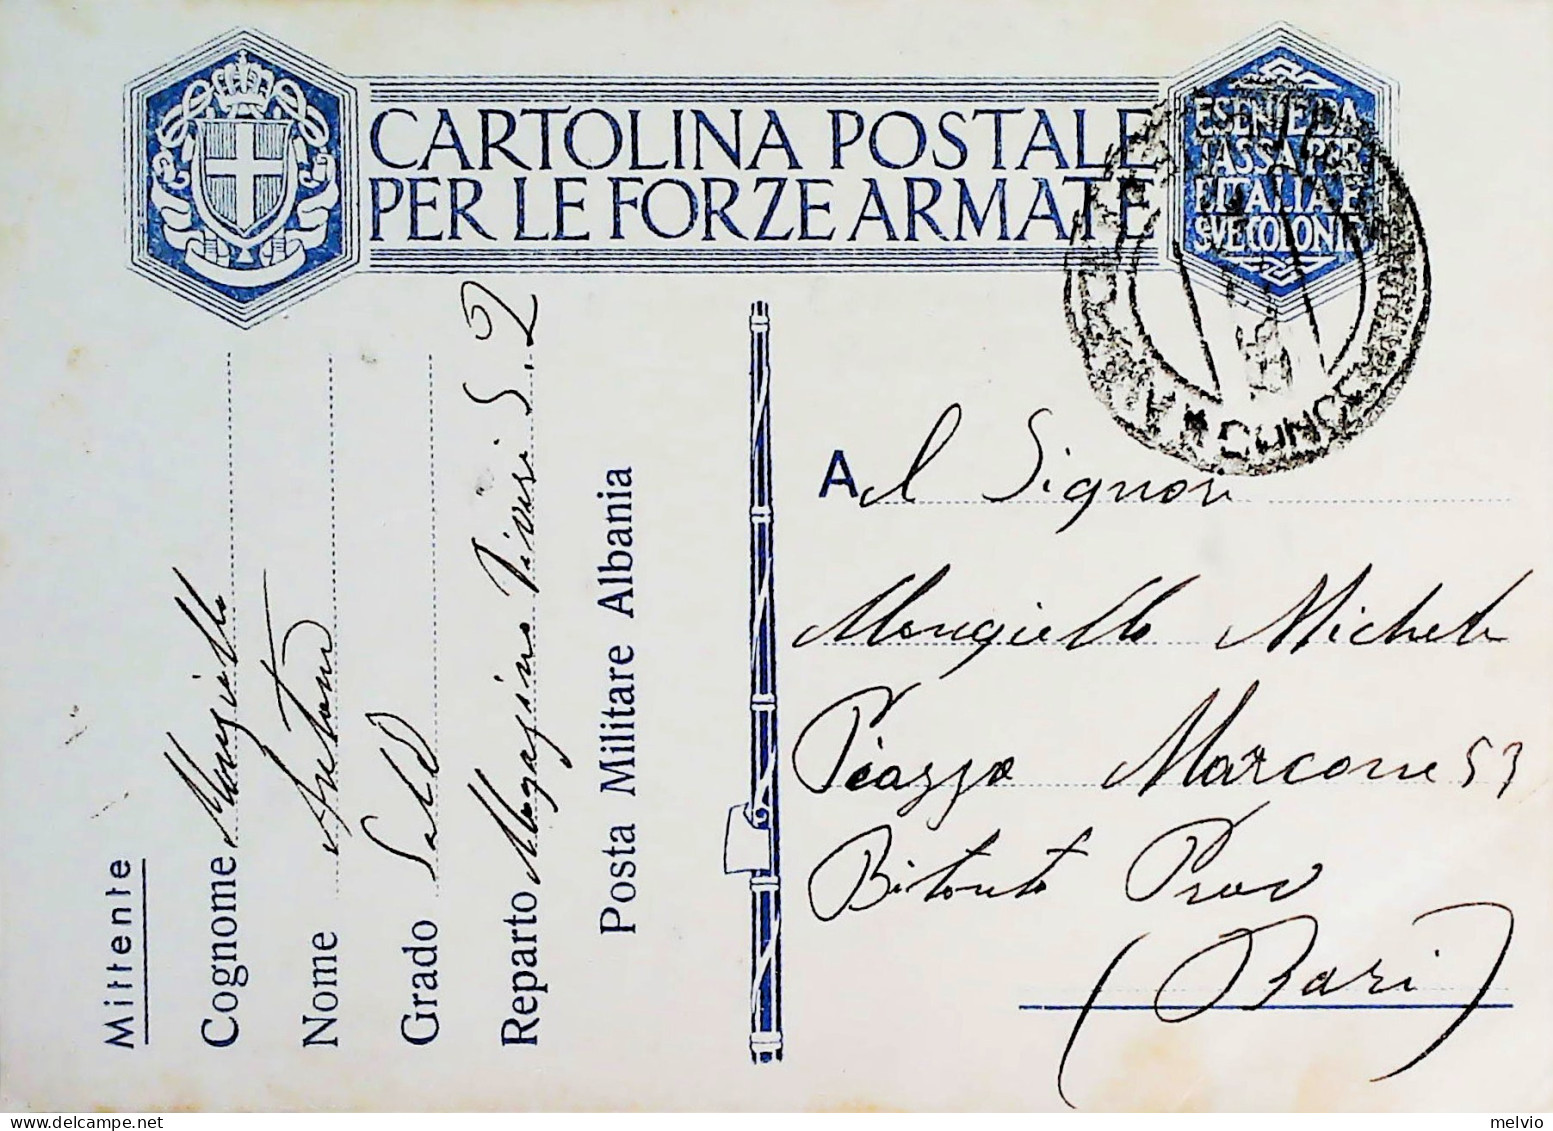 CARTOLINA POSTALE
PER LE FORZE ARMATE
ESENTE DA
TASSA PER
L'ITALIA E
SVE COLONIE
Mittente
Cognome Mongiello
Nome Antonio
Grado Sold
Reparto Magazzino Viveri S. 2
Posta Militare Albania
Al Signor
Mongiello Michele
Piazza Marconi 53
Bitonto Prov
(Bari)
melvio